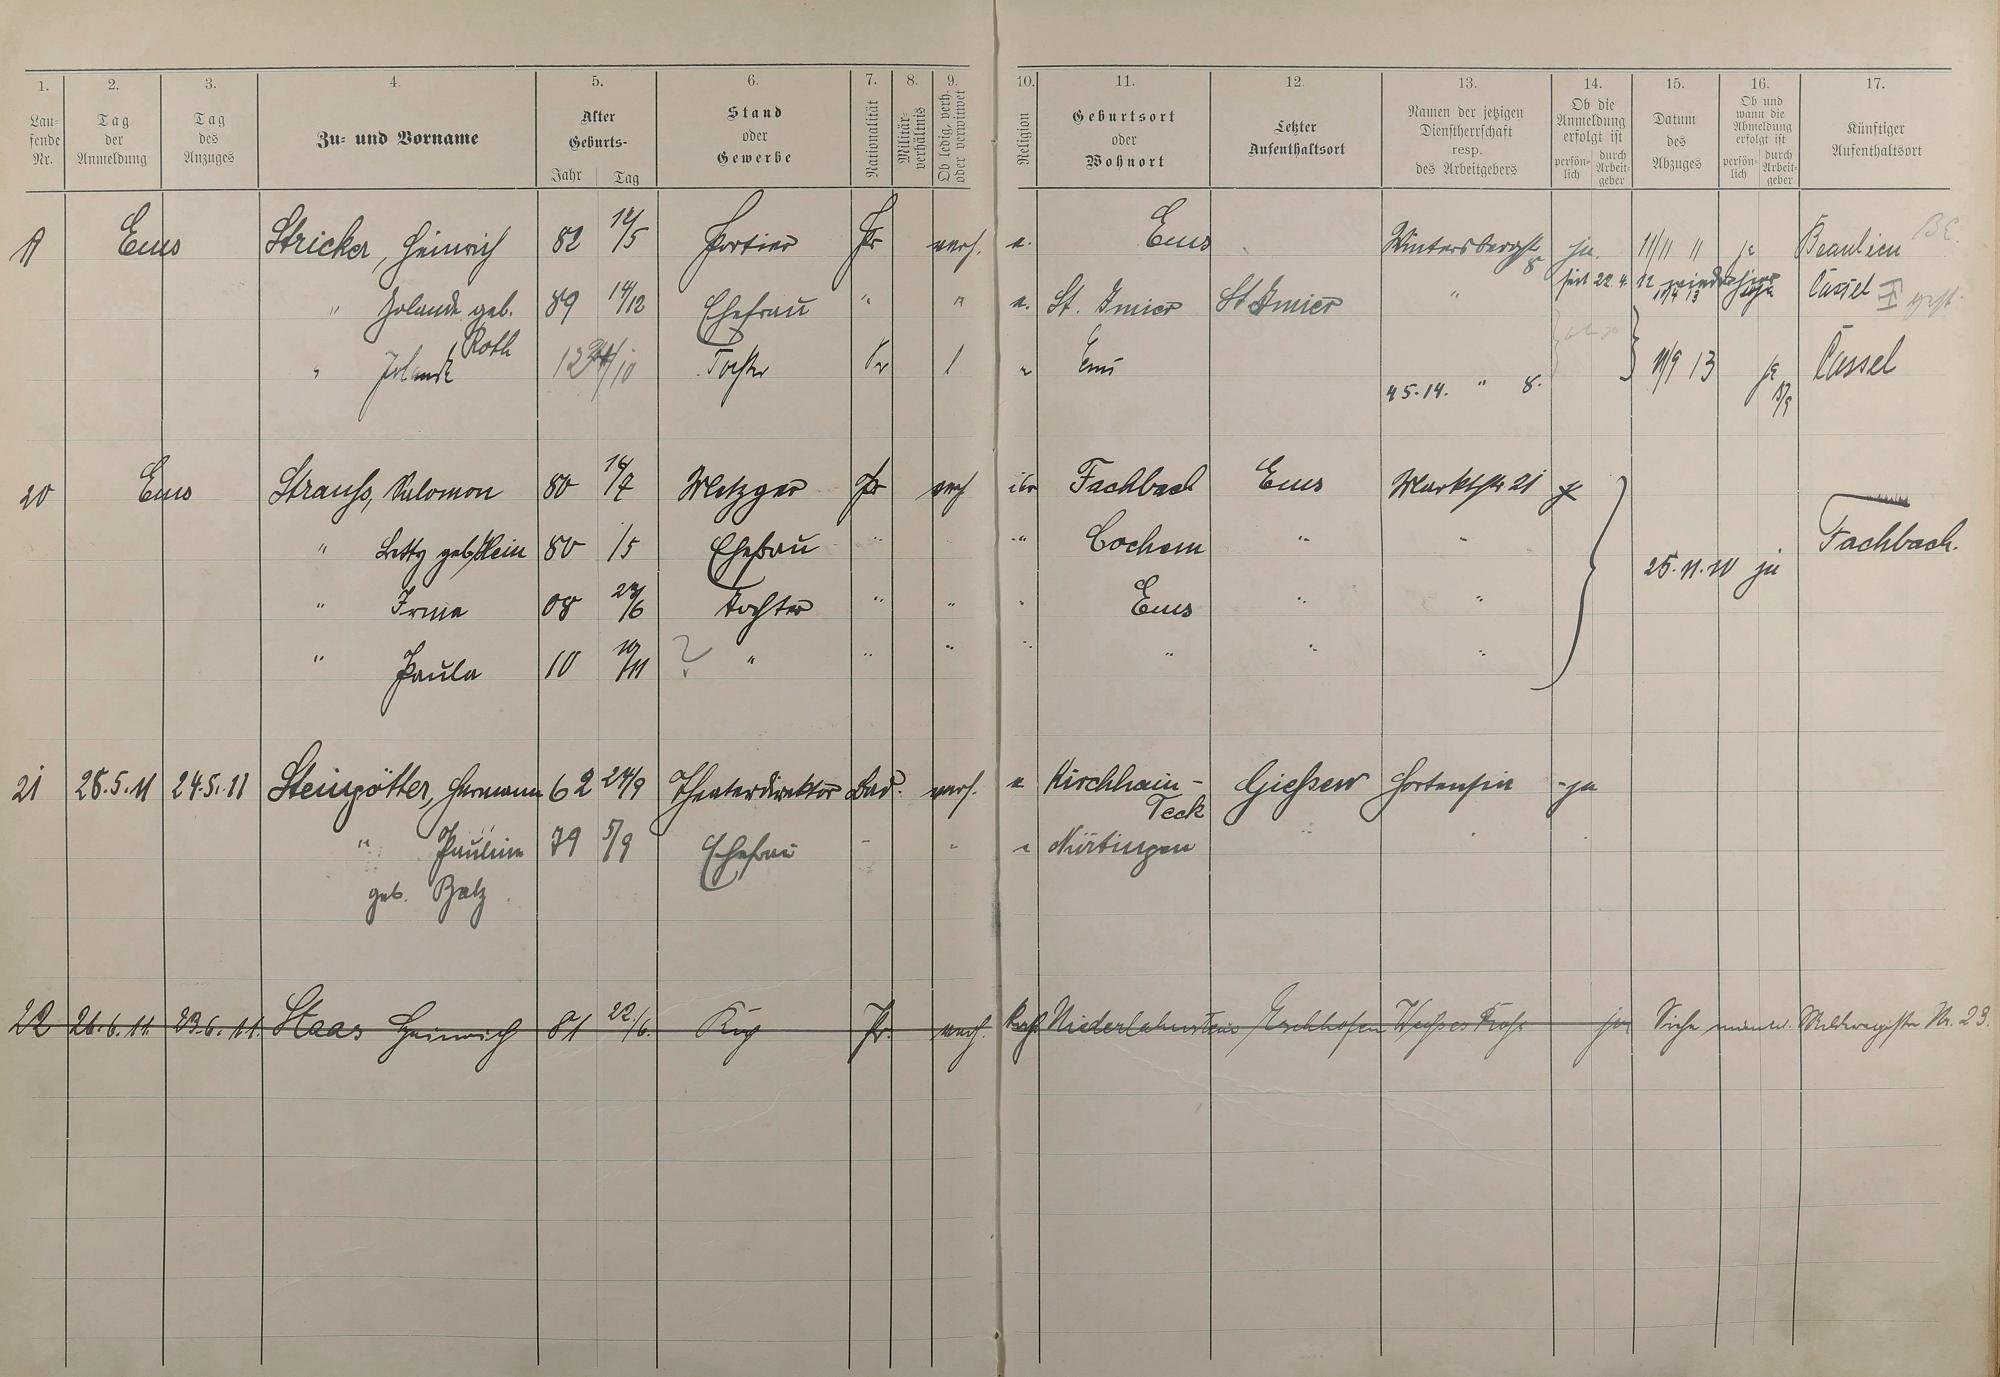 1. 2. 3. 4. 5. 6. 7. 8. 9. 10. 11. 12. 13. 14. 15. 16. 17.
Lau-
fende
Nr.
Tag
der
Anmeldung
Tag
des
Anzuges
Zu- und Vorname
Alter
Geburts-
Jahr Tag
Stand
oder
Gewerbe
Nationalität
Militär-
verhältnis
Ob ledig, verh.
oder verwitwet
Religion
Geburtsort
oder
Wohnort
Letzter
Aufenthaltsort
Namen der jetzigen
Dienstherrschaft
resp.
des Arbeitgebers
Ob die
Anmeldung
erfolgt ist
persön-
lich
durch
Arbeit-
geber
Datum
des
Abzuges
Ob und
wann die
Abmeldung
erfolgt ist
persön-
lich
durch
Arbeit-
geber
Künftiger
Aufenthaltsort
Ems Stricker, Heinrich 82 12/5 Portier Pr verh. e. Ems Wintersbergstr. 8 ja. 11/11 11 ja Beaulieu
seit 22.4.12
" Jolande geb. 89 14/12 Ehefrau " " e. St. Imier St Imier " Cassel
Roth
" Jolande 12 /10 Tochter Pr l " Ems 11/9 13 ja Cassel
4 5. 14. " 8.
20 Ems Strauss, Salomon 80 14/7 Metzger Pr verh isr Fachbach Ems Marktstr 21 ja
" Betty geb. Klein 80 /5 Ehefrau " " Cochem " " 25.11.10 ja Fachbach.
" Irma 08 /6 Tochter " " " Ems " "
" Paula 10 /11 ? " " " " " " "
21 28.5.11 24.5.11 Steingötter, Hermann 62 24/9 Theaterdirektor Bad. verh. e Kirchhain-
Teck
Giessen Hortensia -ja
" Pauline 79 5/9 Ehefrau - " " Nürtingen " " "
geb. Balz
22 26.6.11. 23.6.11. Staas Heinrich 81 22./6. Pr. verh. Niederlahnstein Weisses Ross ja Siehe Melderegister Nr. 23.